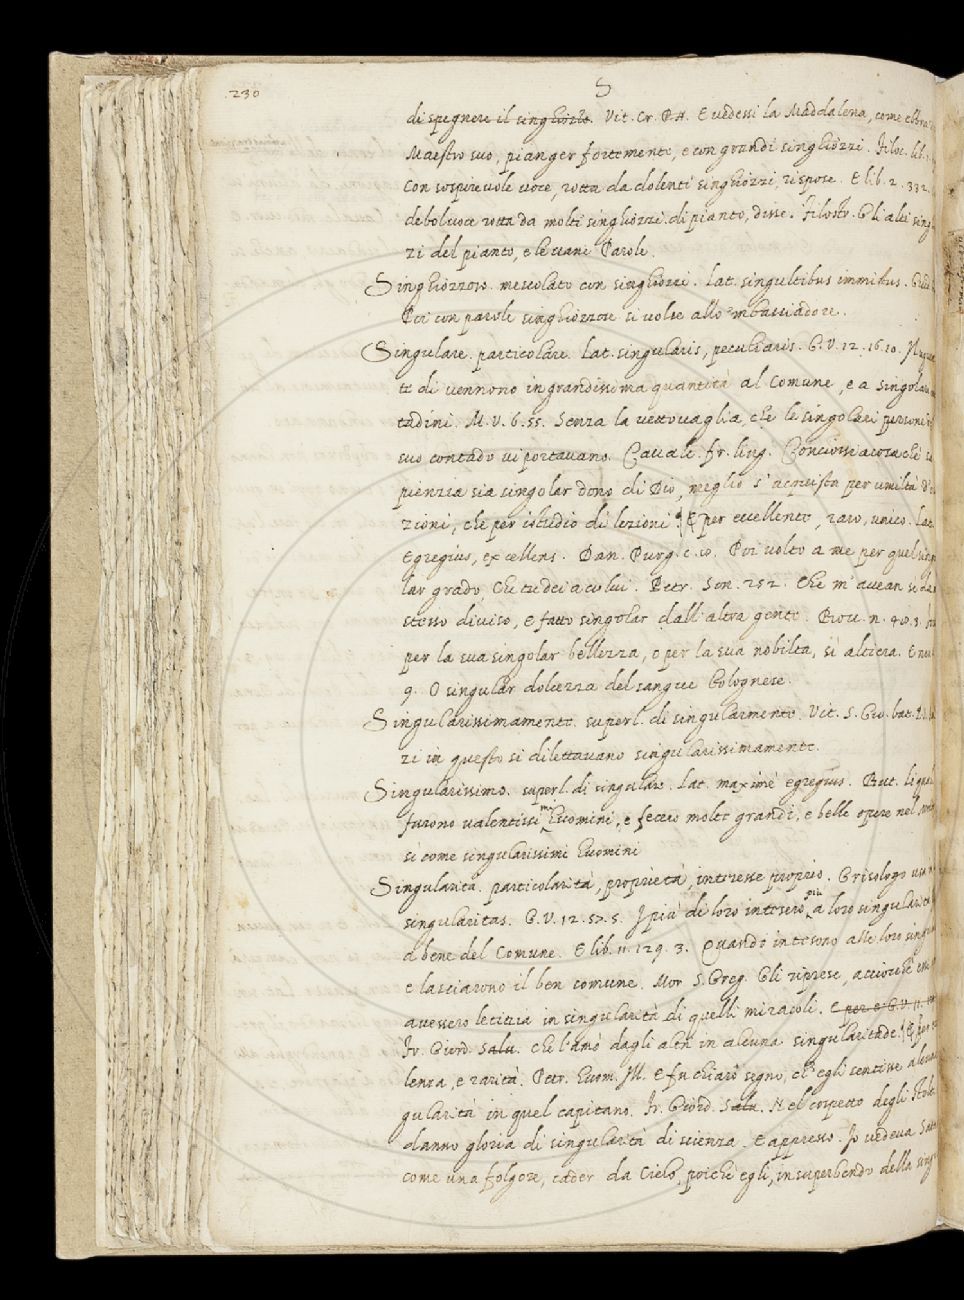 230
S
di spegnere il singhiozzo. Vit. Cr. P.N. E vedessi la Maddalena, come ebbra
Maestro suo, pianger fortemente, e con grandi singhiozzi. Filoc. lib.
Con sospirevole voce, rotta da dolenti singhiozzi, rispose. E lib. 2. 332.
debol voce rotta da molti singhiozzi di pianto, disse. Filostr. Gli alti sing
zi del pianto, e le vane Parole.
Singhiozzoso. mescolato con singhiozzi. Lat. singultibus immixtus.
Poi con parole singhiozzose si volse allo 'mbasciadore.
Singulare. particolare. Lat. singularis, peculiaris. G. V. 12. 16. 10.
te di vennono in grandissima quantità al Comune, e a singolar
tadini. M. V. 6. 55. Senza la vettovaglia, che le singolari persone
suo contado vi portavano. Cavalc. fr. ling. Conciossiacosachè
pienzia sia singolar dono di Dio, meglio s'acquista per umiltà d'
zioni, che per istudio di lezioni ¶ E per eccellente, raro, unico. Lat.
egregius, excellens. Dan. Purg. c. 10. Poi volto a me per quel sing
lar grado, Che tu dei a colui. Petr. Son. 252. Che m'avean sì da
stesso diviso, E fatto singolar dall'altra gente. Bocc. n. 40. 3.
per la sua singolar bellezza, o per la sua nobiltà, sì altiera. E nov.
9. O singular dolcezza del sangue bolognese.
Singularissimamente. superl. di singularmente. Vit. S. Gio. bat.
zi in questo si dilettavano singularissimamente.
Singularissimo. superl. di singulare. Lat. maximè egregius. But. li quali
furono valentissimi huomini, e fecero molte grandi, e belle opere nel
sì come singularissimi huomini
Singularità. particolarità, proprietà, interesse proprio. Grisologo usa
singularitas. G. V. 12. 57. 5. I più di loro intesero più a loro singularità
a bene del Comune. E lib. 11. 129. 3. Quando intesono alle loro sing
e lasciarono il ben comune. Mor S. Greg. Gli riprese, acciocchè
avessero letizia in singularità di quelli miracoli. E per G. V. 11.
Fr. Giord. Salv. che l'amò dagli altri in alcuna singularitade. ¶ E per
lenza, e rarità. Petr. huom. Ill. E fu chiaro segno, ch'egli sentisse alcuna
gularità in quel capitano. Fr. Giord. Salv. Nel cospetto degli
danno gloria di singularità di scienza. E appresso. Io vedeva
come una folgore, cader da Cielo, poichè egli, insuperbendo della sing